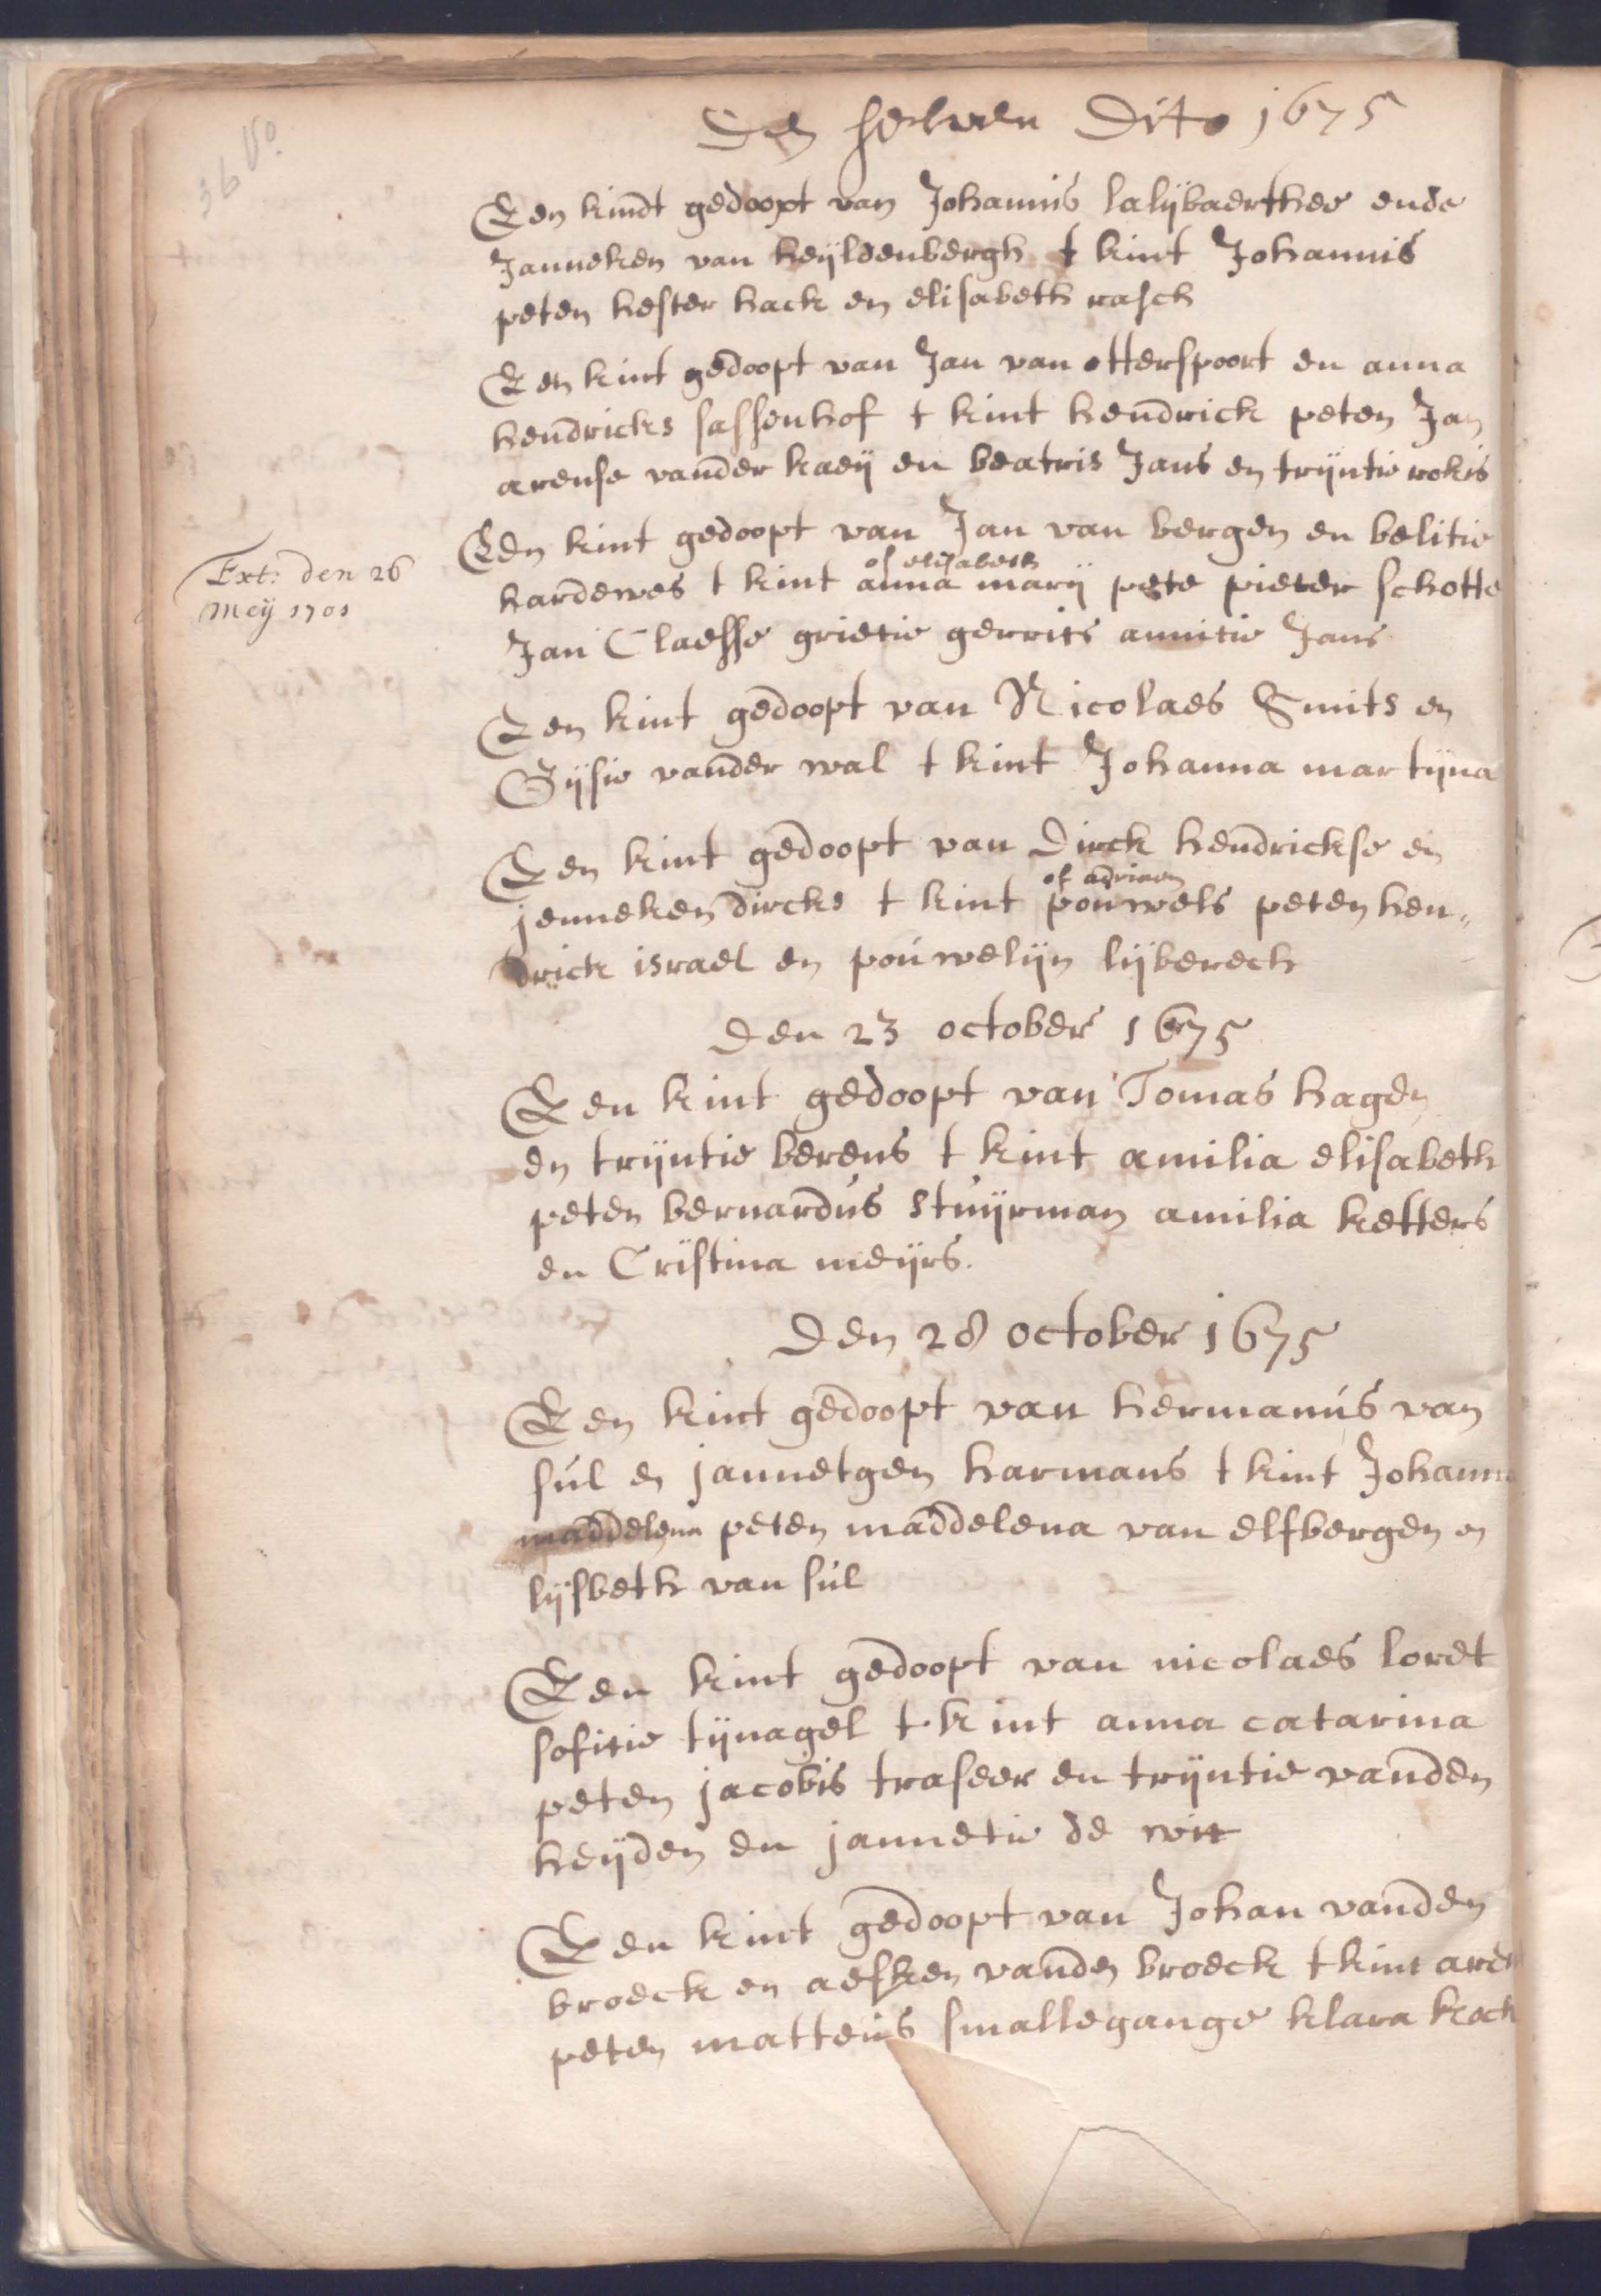 36 vo
Den selven Dito 1675
Een kindt gedoopt van Johannis lalijbaerthee ende
Janneken van heijldenbergh t kint Johannis
peten hester hack en elisabeth rasch
Een kint gedoopt van Jan van otterspoort en anna
hendricks sassenhof t kint hendrick peten Jan
arense vander kaeij en beatris Jans en trijntie rokis
Ext: den 26
Meij 1701
Een kint gedoopt van Jan van bergen en belitie
of elisabeth
hardewes t kint anna marij pete pieter schotte
Jan Claesse grietie gerrits annitie Jans
Een kint gedoopt van Nicolaes Smits en
Gijsie vander wal t kint Johanna martijna
Een kint gedoopt van Dirck hendrickse en
of adriaen
jenneken dircks t kint pouwels peten hen„
drick israel en pouwelijn lijberech
Den 23 october 1675
Een kint gedoopt van Tomas hagen
en trijntie berens t kint amilia elisabeth
peten bernardus stuijrman amilia ketters
en Cristina meijrs.
Den 28 october 1675
Een kint gedoopt van hermanus van
sul en jannetgen harmans t kint Johanna
maddelena peten maddelena van elfbergen en
lijsbeth van sul
Een kint gedoopt van nicolaes loret
sofitie tijnagel t kint anna catarina
peten jacobis traseer en trijntie vanden
heijden en jannetie de wit
Een kint gedoopt van Johan vanden
broeck en aefken vanden broeck t kint aren
peten matteus smallegange klara kock